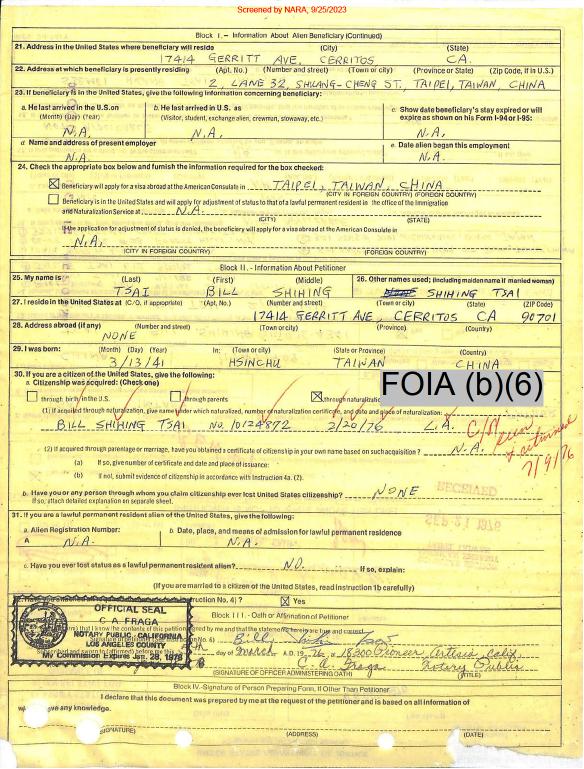 Screened by NARA, 9/25/2023
Block I. – Information About Alien Beneficiary (Continued)
21. Address in the United States where beneficiary will reside (City) (State)
17414 GERRITT AVE, CERRITOS CA.
22. Address at which beneficiary is presently residing (Apt. No.) (Number and street) (Town or city) (Province or State) (Zip Code, if in U.S.)
2, LANE 32, SHUANG-CHENG ST., TAIPEI, TAIWAN, CHINA
23. If beneficiary is in the United States, give the following information concerning beneficiary:
a. He last arrived in the U.S. on b. He last arrived in U.S. as c. Show date beneficiary's stay expired or will
(Month) (Day) (Year) (Visitor, student, exchange alien, crewman, stowaway, etc.) expire as shown on his Form I-94 or I-95:
N.A. N.A. N.A.
d Name and address of present employer e. Date alien began this employment
N.A. N.A.
24. Check the appropriate box below and furnish the information required for the box checked:
Beneficiary will apply for a visa abroad at the American Consulate in TAIPEI, TAIWAN, CHINA
(CITY IN FOREIGN COUNTRY) (FOREIGN COUNTRY)
Beneficiary is in the United States and will apply for adjustment of status to that of a lawful permanent resident in the office of the Immigration
and Naturalization Service at N.A.
(CITY) (STATE)
If the application for adjustment of status is denied, the beneficiary will apply for a visa abroad at the American Consulate in
N.A.
(CITY IN FOREIGN COUNTRY) (FOREIGN COUNTRY)
Block II. - Information About Petitioner
25. My name is (Last) (First) (Middle) 26. Other names used; (including maiden name if married woman)
TSAI BILL SHIHING SHIHING TSAI
27. I reside in the United States at (C.O. if appropriate) (Apt. No.) (Number and street) (Town or city) (State) (ZIP Code)
17414 GERRITT AVE, CERRITOS CA 90701
28. Address abroad (if any) (Number and street) (Town or city) (Province) (Country)
NONE
29. I was born: (Month) (Day) (Year) In: (Town or city) (State or Province) (Country)
3/13/41 HSINCHU TAIWAN CHINA
30. If you are a citizen of the United States, give the following:
a Citizenship was acquired: (Check one)
through birth in the U.S. through parents through naturalization
FOIA (b)(6)
(1) If acquired through naturalization, give name under which naturalized, number of naturalization certificate, and date and place of naturalization:
BILL SHIHING TSAI No. 10124872 2/20/76 L.A.
C/N seen
& returned
7/9/76
(2) If acquired through parentage or marriage, have you obtained a certificate of citizenship in your own name based on such acquisition? N.A.
(a) If so, give number of certificate and date and place of issuance:
(b) If not, submit evidence of citizenship in accordance with Instruction 4a. (2).
b. Have you or any person through whom you claim citizenship ever lost United States citizenship? NONE
If so, attach detailed explanation on separate sheet.
31. If you are a lawful permanent resident alien of the United States, give the following:
a. Alien Registration Number: b. Date, place, and means of admission for lawful permanent residence
A N.A. N.A.
c. Have you ever lost status as a lawful permanent resident alien? NO. If so, explain:
(If you are married to a citizen of the United States, read Instruction 1b carefully)
Yes
OFFICIAL SEAL
C. A. FRAGA
NOTARY PUBLIC - CALIFORNIA
LOS ANGELES COUNTY
My Commission Expires Jan. 28, 1978
Block III - Oath or Affirmation of Petitioner
Bill Shihing Tsai
day of March A.D. 19 76 at 18300 Pioneer Artesia Calif.
C. A. Fraga Notary Public
(SIGNATURE OF OFFICER ADMINISTERING OATH) (TITLE)
Block IV.-Signature of Person Preparing Form, If Other Than Petitioner
I declare that this document was prepared by me at the request of the petitioner and is based on all information of
which I have any knowledge.
(SIGNATURE) (ADDRESS) (DATE)